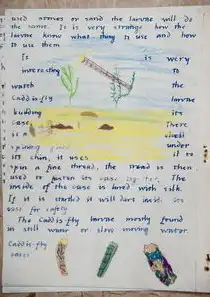 used armos or sand the larvae will do
the same. It is very strange how the
larvae know what thing to use and how
to use them
It is very
interesting to
watch the
Caddisfly larvae
building its
case. There
is a shell
spining gland under
its chin, it uses it to
spin a fine thread, the tread is then
used to fasten its case together. The
inside of the case is lined with silk.
If it is startled it will dart inside its
case for safety
The Caddis-fly larvae mostly found
in still water or slow moving water.
Caddis-fly
cases